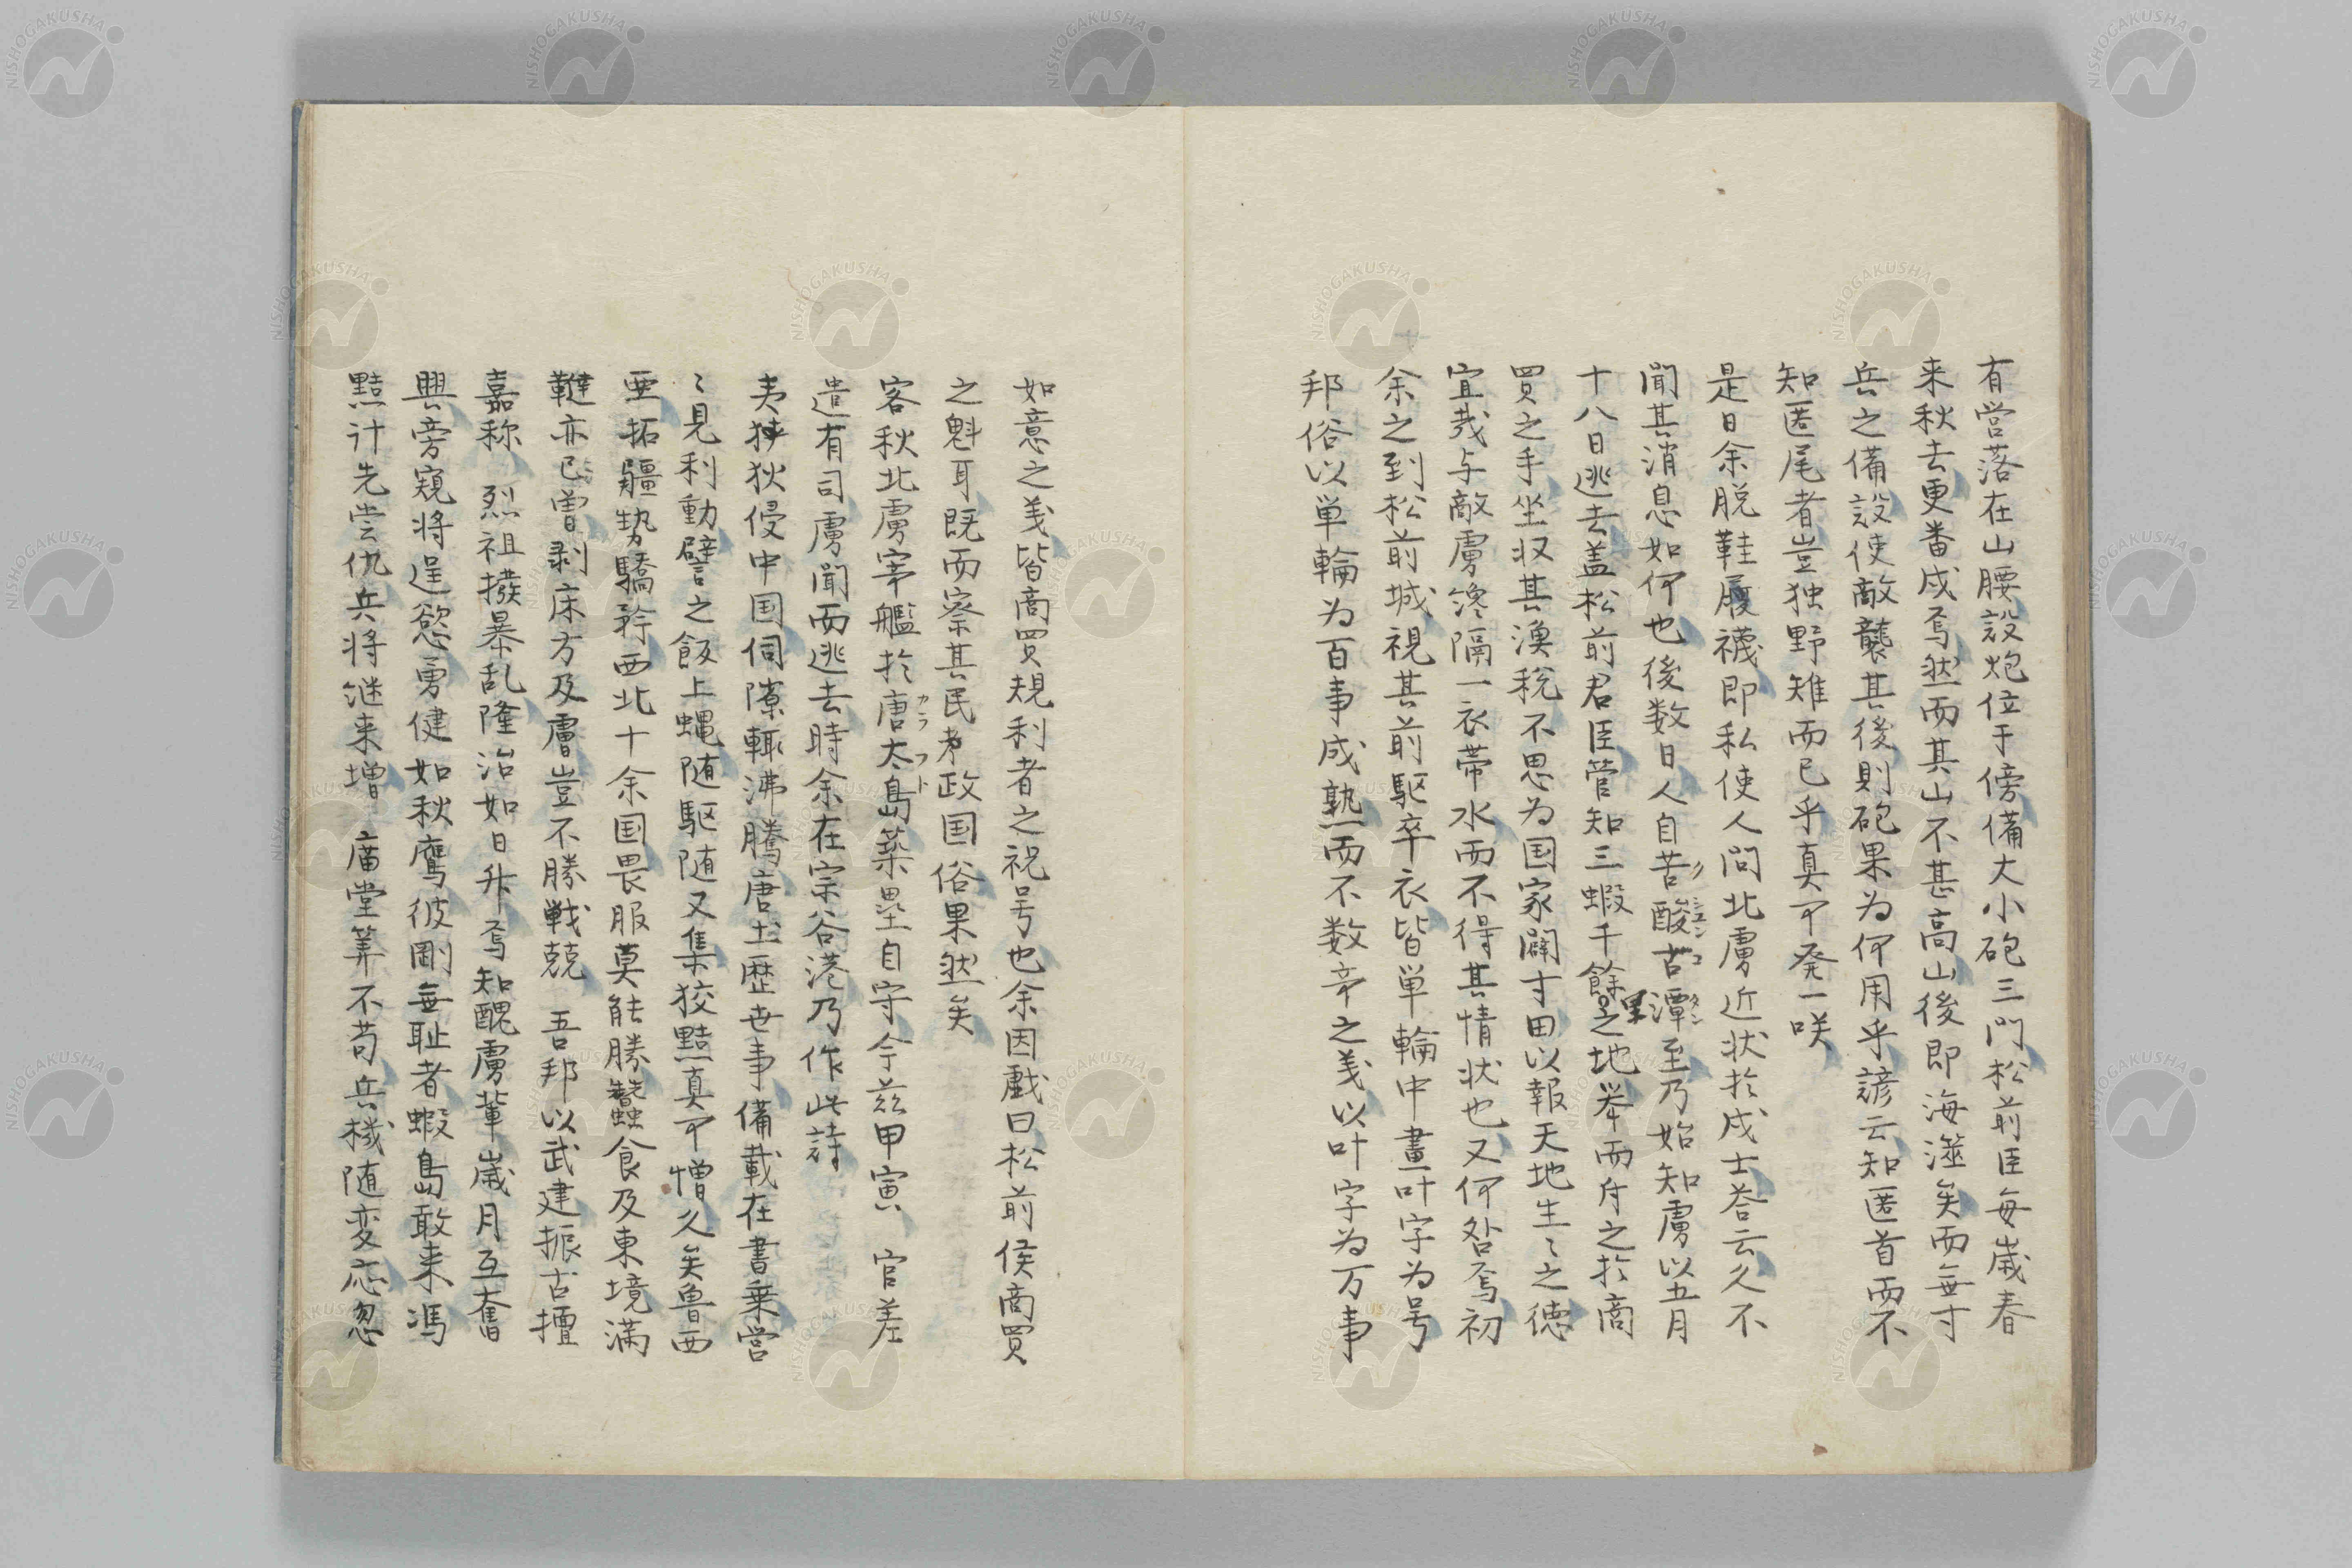 有営落在山腰設炮位于傍備大小砲三門松前臣毎嵗春
来秋去更番戍焉然而其山不甚高山後即海澨矣而無寸
兵之備設使敵襲其後則砲果為何用乎諺云知匿首而不
知匿尾者豈独野雉而已乎真可発一咲
是日余脱鞋履襪即私使人問北虜近状於戍士荅云久不
聞其消息如何也後数日人自苦酸古潭至乃始知虜以五月
十八日逃去盖松前君臣管知三蝦千餘里之地举而付之於商
買之手坐収其漁税不思為国家闢寸田以報天地生〻之徳
宜哉与敵虜纔隔一衣帯水而不得其情状也又何咎焉初
余之到松前城視其前駆卒衣皆単輪中畫叶字為号
邦俗以単輪為百事成熟而不数帝之義以叶字為万事
如意之義皆商買規利者之祝号也余因戯曰松前侯商買
之魁耳既而察其民弟政国俗果然矣
客秋北虜寄艦於唐太島築塁自守今茲甲寅 官差
遣有司虜聞而逃去時余在宗谷港乃作此詩
夷狭狄侵中国伺隙輙沸騰唐土歴世事備載在書乗営
〻見利動譬之飯上蝿随駆随又集狡黠真可憎久矣魯西
亜拓疆勢驕矜西北十余国畏服莫能勝蠶食及東境満
韃亦已曽剥床方及膚豈不勝戦兢 吾邦以武建振古擅
嘉称 烈祖撥暴乱隆治如日升焉知醜虜輩嵗月互奮
興旁窺将逞慾勇健如秋鷹彼剛無耻者蝦島敢来馮
黠計先甞仇兵将継来増 廣堂筭不苟兵機随変応忽
NISHOGAKUSHA